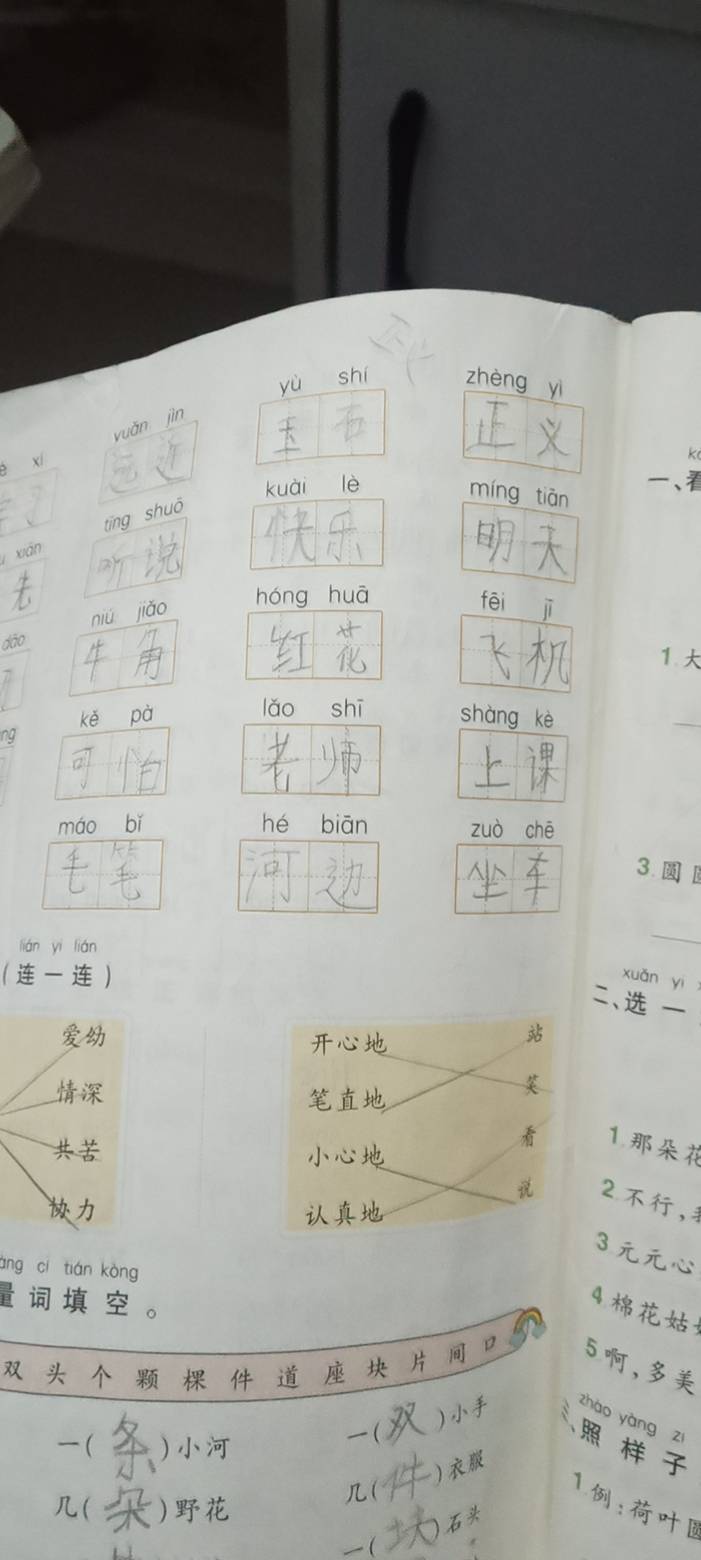 yuǎn jìn yù shí zhèng yì
远近 玉石 正义
xì
tīng shuō kuài lè míng tiān
听说 快乐 明天
xiān
先
niú jiǎo hóng huā fēi jī
牛角 红花 飞机
dāo
kě pà lǎo shī shàng kè
可怕 老师 上课
máo bǐ hé biān zuò chē
毛笔 河边 坐车
lián yi lián
(连一连)
爱幼 开心地 站
情深 笔直地 笑
共苦 小心地 看
协力 认真地 说
cí tián kòng
量词填空。
双 头 个 颗 棵 件 道 座 块 片 间 口
一(条)小河 一(双)小手
几(朵)野花 几(件)衣服
一(块)石头
一、看
1 大
3 圆
xuǎn yi
二、选一
1 那朵花
2 不行,
3 元元心
4 棉花姑
5 啊,多美
zhào yàng zi
三、照样子
1 例:荷叶圆